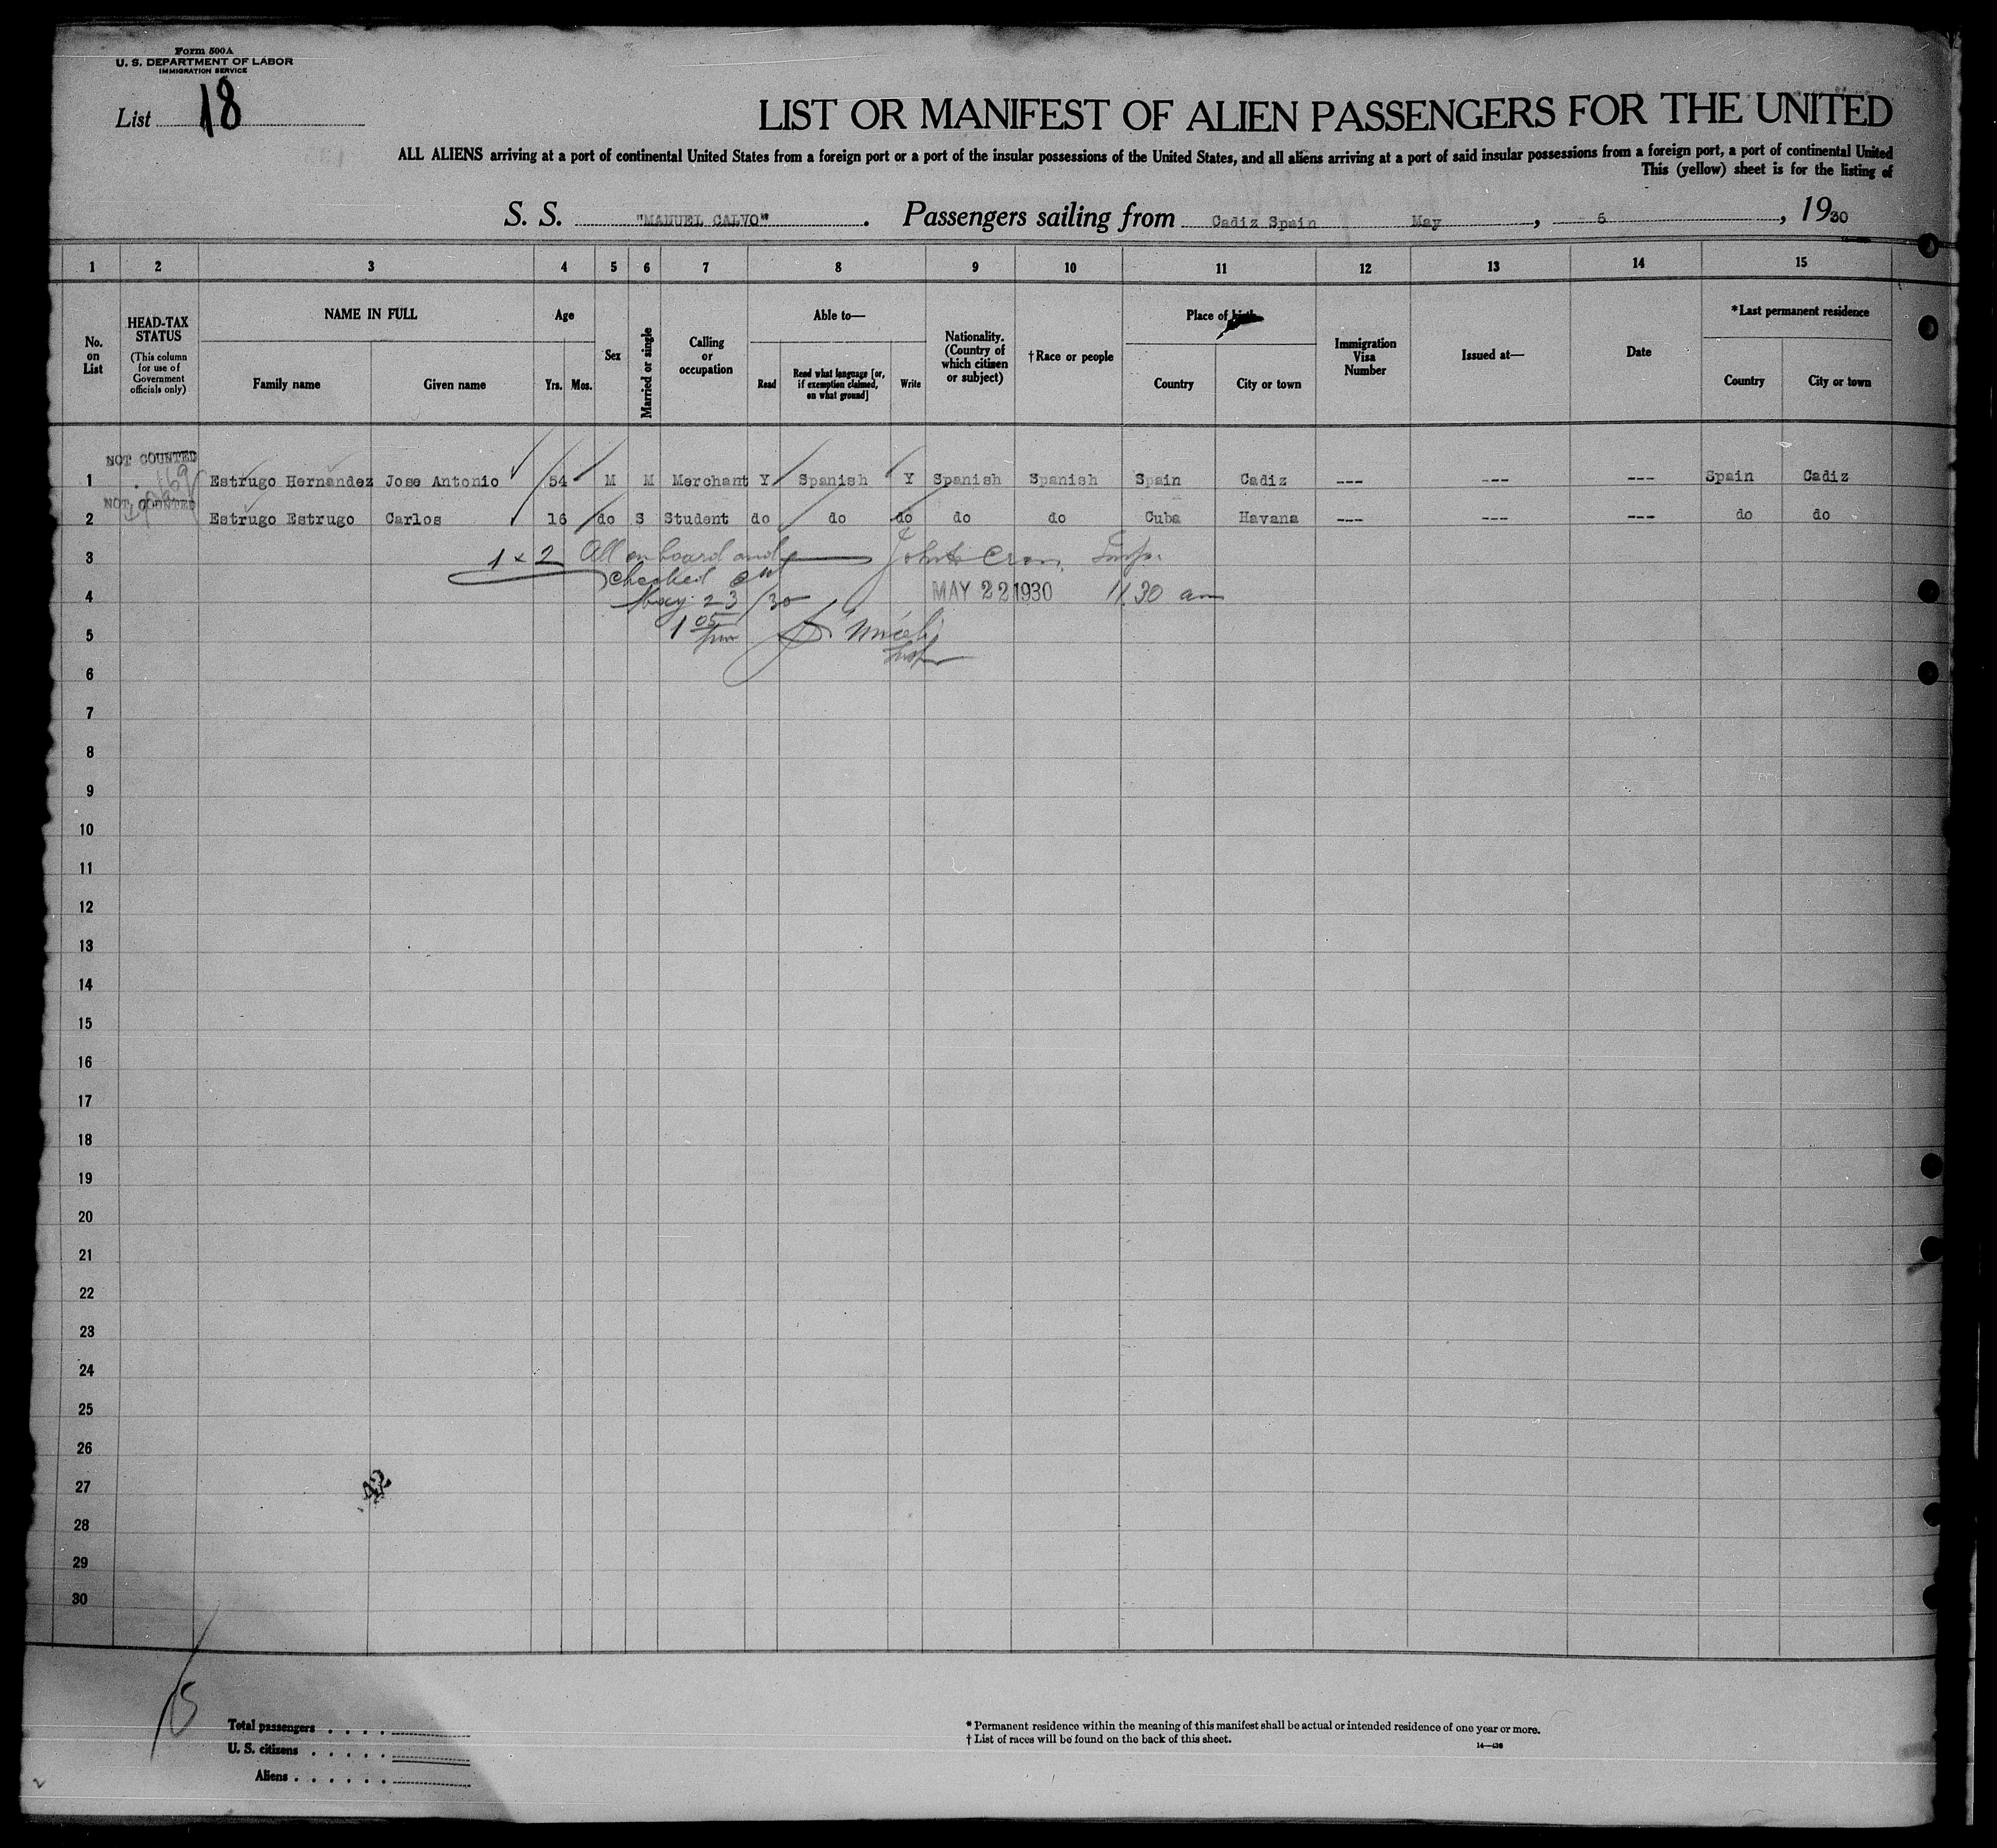 Form 500A
U. S. DEPARTMENT OF LABOR
IMMIGRATION SERVICE
List 18
LIST OR MANIFEST OF ALIEN PASSENGERS FOR THE UNITED
ALL ALIENS arriving at a port of continental United States from a foreign port or a port of the insular possessions of the United States, and all aliens arriving at a port of said insular possessions from a foreign port, a port of continental United
This (yellow) sheet is for the listing of
S. S. "MANUEL CALVO". Passengers sailing from Cadiz Spain May, 5, 1930
1 2 3 4 5 6 7 8 9 10 11 12 13 14 15
No. on List
HEAD-TAX STATUS (This column for use of Government officials only)
NAME IN FULL
Family name Given name
Age
Yrs. Mos.
Sex
Married or single
Calling or occupation
Able to—
Read Read what language [or, if exemption claimed, on what ground] Write
Nationality. (Country of which citizen or subject)
†Race or people
Place of birth
Country City or town
Immigration Visa Number
Issued at—
Date
*Last permanent residence
Country City or town
NOT COUNTED
1 Estrugo Hernandez Jose Antonio 54 M M Merchant Y Spanish Y Spanish Spanish Spain Cadiz --- --- --- Spain Cadiz
NOT COUNTED
2 Estrugo Estrugo Carlos 16 do S Student do do do do do Cuba Havana --- --- --- do do
3 1 & 2 All on board and Insp.
checked out
4 May 23/30 MAY 22 1930 11.30 am
5 1 05 pm Miceli
Insp
6
7
8
9
10
11
12
13
14
15
16
17
18
19
20
21
22
23
24
25
26
27
42
28
29
30
Total passengers
U. S. citizens
Aliens
* Permanent residence within the meaning of this manifest shall be actual or intended residence of one year or more.
† List of races will be found on the back of this sheet.